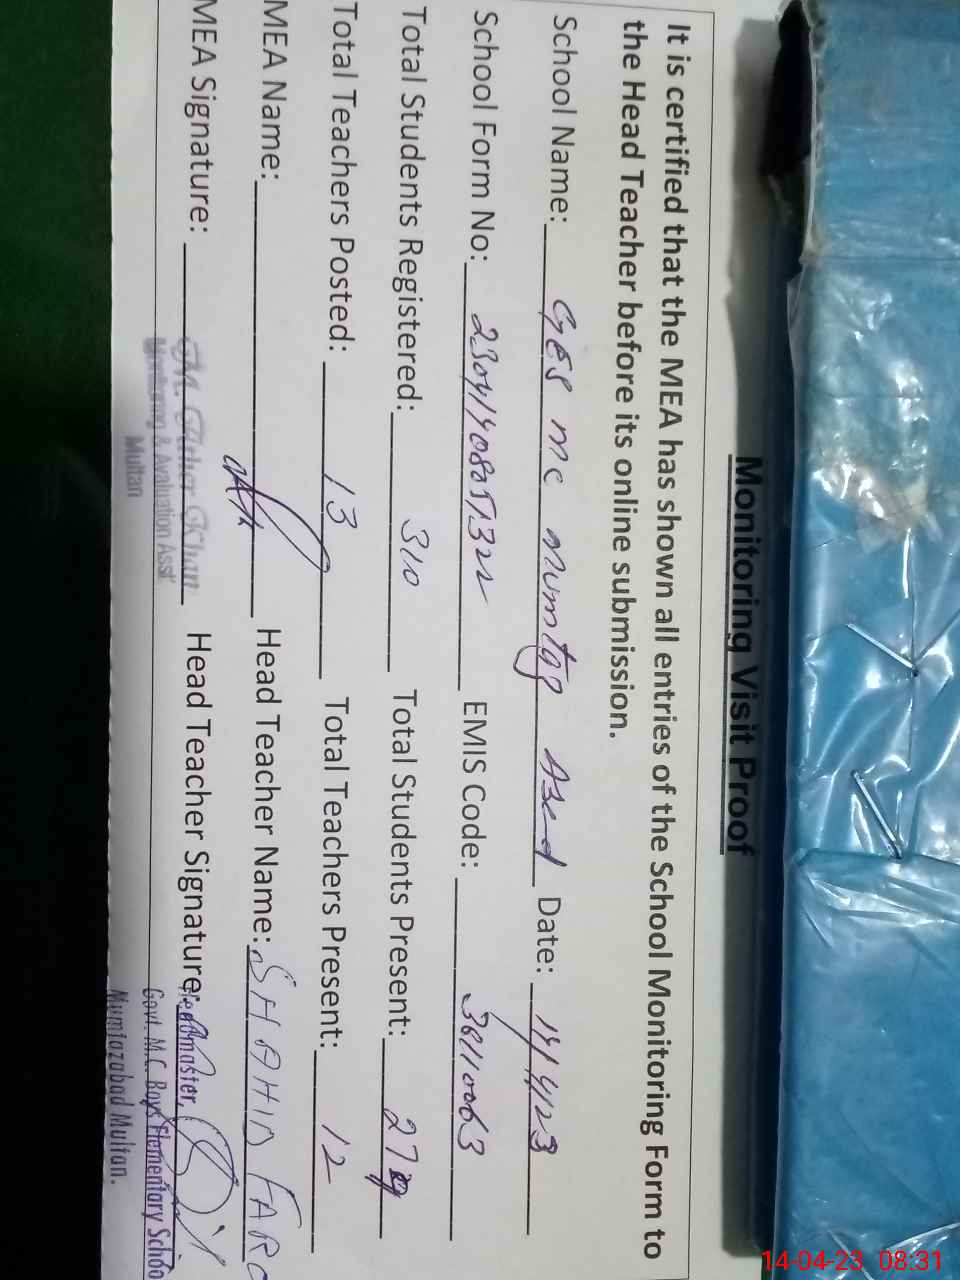 Monitoring Visit Proof
It is certified that the MEA has shown all entries of the School Monitoring Form to
the Head Teacher before its online submission.
School Name: GES MC Mumtaz Abad Date: 14/4/23
School Form No: EMIS Code:
Total Students Registered: 310 Total Students Present:
Total Teachers Posted: 13 Total Teachers Present: 12
MEA Name: Head Teacher Name: SHAHID FARO
MEA Signature: Head Teacher Signature:
Monitoring & Avaluation Asst
Multan
Headmaster,
Govt. M.C. Boys Elementary Schoo
Mumtazabad Multan.
14-04-23 08:31